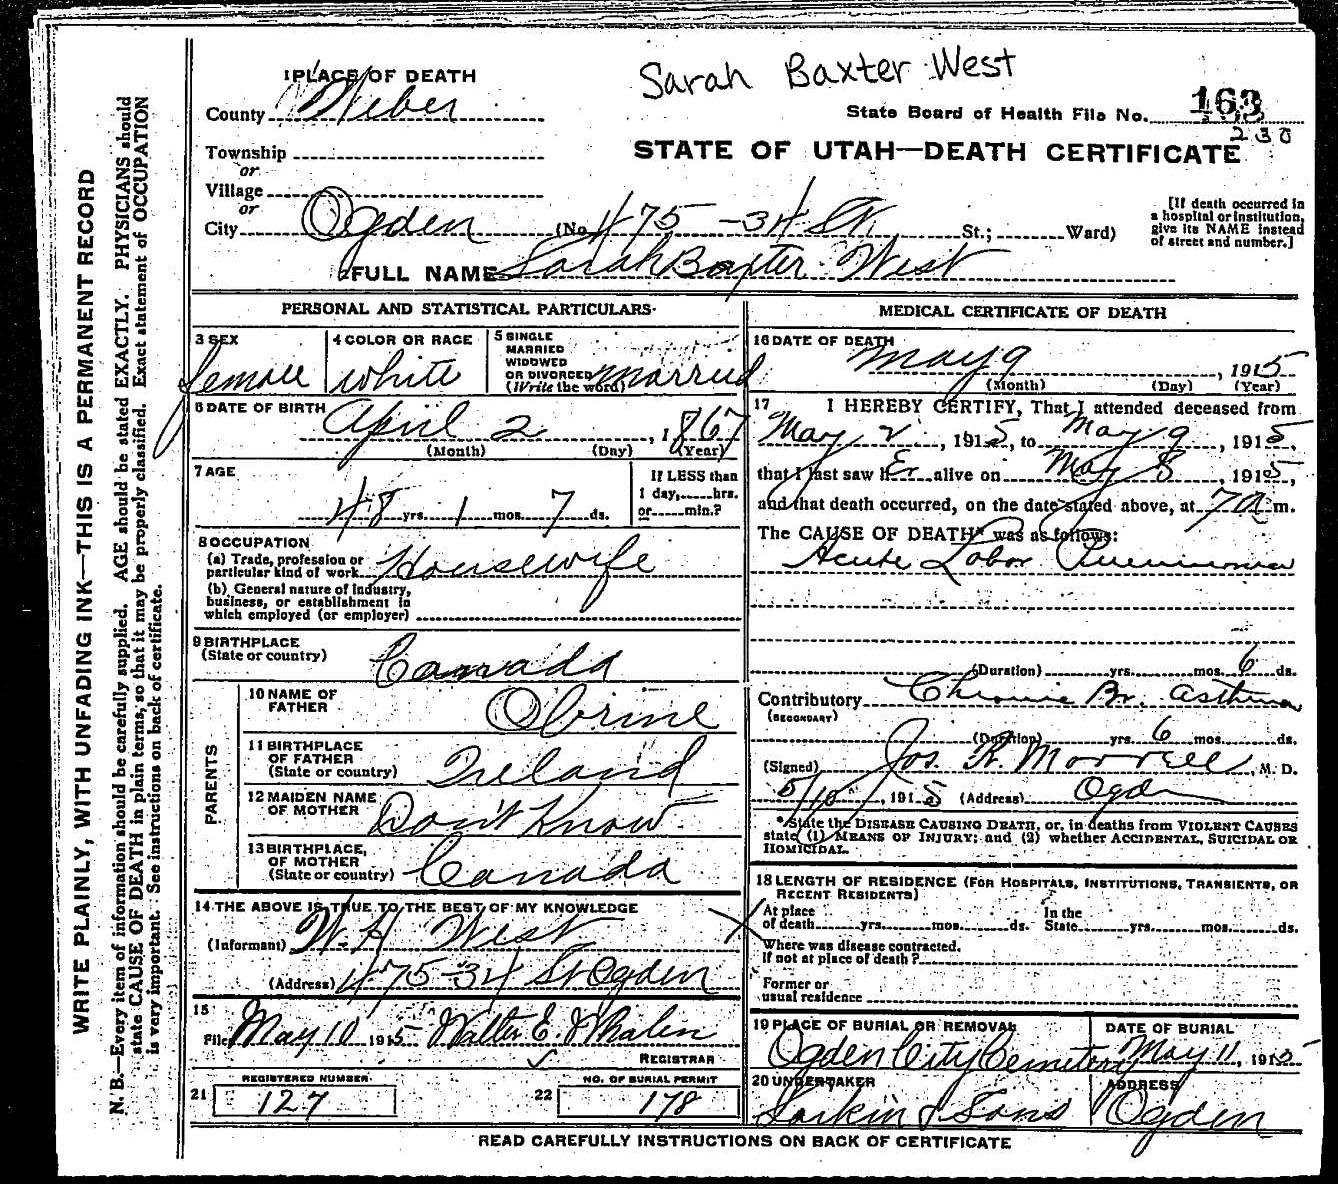 Sarah Baxter West
1 PLACE OF DEATH
County Weber
State Board of Health File No. 163
230
Township
or
Village
or
City Ogden (No. 475 - 34 St. St.; Ward)
STATE OF UTAH—DEATH CERTIFICATE
[If death occurred in
a hospital or institution,
give its NAME instead
of street and number.]
2 FULL NAME Sarah Baxter West
PERSONAL AND STATISTICAL PARTICULARS
3 SEX
female
4 COLOR OR RACE
white
5 SINGLE
MARRIED
WIDOWED
OR DIVORCED
(Write the word) married
6 DATE OF BIRTH
April 2, 1867
(Month) (Day) (Year)
7 AGE
48 yrs. 1 mos. 7 ds.
If LESS than
1 day,......hrs.
or......min.?
8 OCCUPATION
(a) Trade, profession or
particular kind of work Housewife
(b) General nature of industry,
business, or establishment in
which employed (or employer)
9 BIRTHPLACE
(State or country) Canada
PARENTS
10 NAME OF
FATHER Obrine
11 BIRTHPLACE
OF FATHER
(State or country) Ireland
12 MAIDEN NAME
OF MOTHER Don't Know
13 BIRTHPLACE,
OF MOTHER
(State or country) Canada
14 THE ABOVE IS TRUE TO THE BEST OF MY KNOWLEDGE
(Informant) W. H. West
(Address) 475-34 St Ogden
15
Filed May 10 1915 Walter E Whalen
REGISTRAR
REGISTERED NUMBER
21 127
NO. OF BURIAL PERMIT
22 178
MEDICAL CERTIFICATE OF DEATH
16 DATE OF DEATH
May 9, 1915
(Month) (Day) (Year)
17 I HEREBY CERTIFY, That I attended deceased from
May 2, 1915, to May 9, 1915,
that I last saw hEr alive on May 8, 1915,
and that death occurred, on the date stated above, at 7 a m.
The CAUSE OF DEATH* was as follows:
Acute Lobar Pneumonia
(Duration) yrs. mos. 6 ds.
Contributory Chronic Br. asthma
(SECONDARY)
(Duration) yrs. 6 mos. ds.
(Signed) Jos. R. Morrell, M. D.
5/10, 1915 (Address) Ogden
*State the DISEASE CAUSING DEATH, or, in deaths from VIOLENT CAUSES
state (1) MEANS OF INJURY; and (2) whether ACCIDENTAL, SUICIDAL OR
HOMICIDAL.
18 LENGTH OF RESIDENCE (FOR HOSPITALS, INSTITUTIONS, TRANSIENTS, OR
RECENT RESIDENTS)
At place
of death......yrs......mos......ds.
In the
State......yrs......mos......ds.
Where was disease contracted.
If not at place of death?
Former or
usual residence
19 PLACE OF BURIAL OR REMOVAL
Ogden City Cemetery
DATE OF BURIAL
May 11, 1915
20 UNDERTAKER
Larkin & Sons
ADDRESS
Ogden
READ CAREFULLY INSTRUCTIONS ON BACK OF CERTIFICATE
WRITE PLAINLY, WITH UNFADING INK—THIS IS A PERMANENT RECORD
N. B.—Every item of information should be carefully supplied. AGE should be stated EXACTLY. PHYSICIANS should
state CAUSE OF DEATH in plain terms, so that it may be properly classified. Exact statement of OCCUPATION
is very important. See instructions on back of certificate.